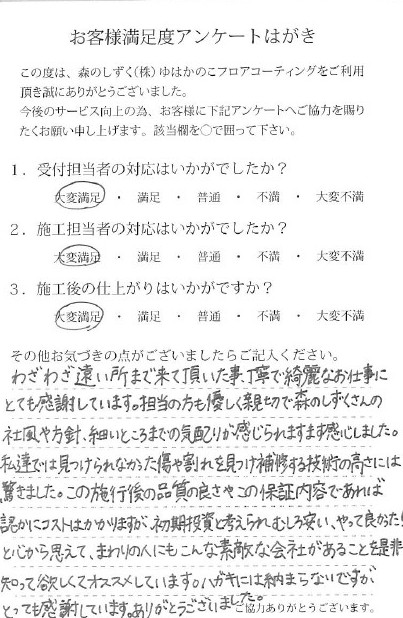 お客様満足度アンケートはがき
この度は、森のしずく(株)ゆはかのこフロアコーティングをご利用
頂き誠にありがとうございました。
今後のサービス向上の為、お客様に下記アンケートへご協力を賜り
たくお願い申し上げます。該当欄を○で囲って下さい。
1．受付担当者の対応はいかがでしたか？
大変満足 ・ 満足 ・ 普通 ・ 不満 ・ 大変不満
2．施工担当者の対応はいかがでしたか？
大変満足 ・ 満足 ・ 普通 ・ 不満 ・ 大変不満
3．施工後の仕上がりはいかがですか？
大変満足 ・ 満足 ・ 普通 ・ 不満 ・ 大変不満
その他お気づきの点がございましたらご記入ください。
わざわざ遠い所まで来て頂いた事、丁寧で綺麗なお仕事に
とても感謝しています。担当の方も優しく親切で森のしずくさんの
社風や方針、細いところまでの気配りが感じられますます感心しました。
私達では見つけられなかった傷や割れを見つけ補修する技術の高さには
驚きました。この施行後の品質の良さやこの保証内容であれば
確かにコストはかかりますが、初期投資と考えられ、むしろ安い、やって良かった!
と心から思えて、まわりの人にもこんな素敵な会社があることを是非
知って欲しくてオススメしています。ハガキには納まらないですが
とっても感謝しています。ありがとうございました。
ご協力ありがとうございます。